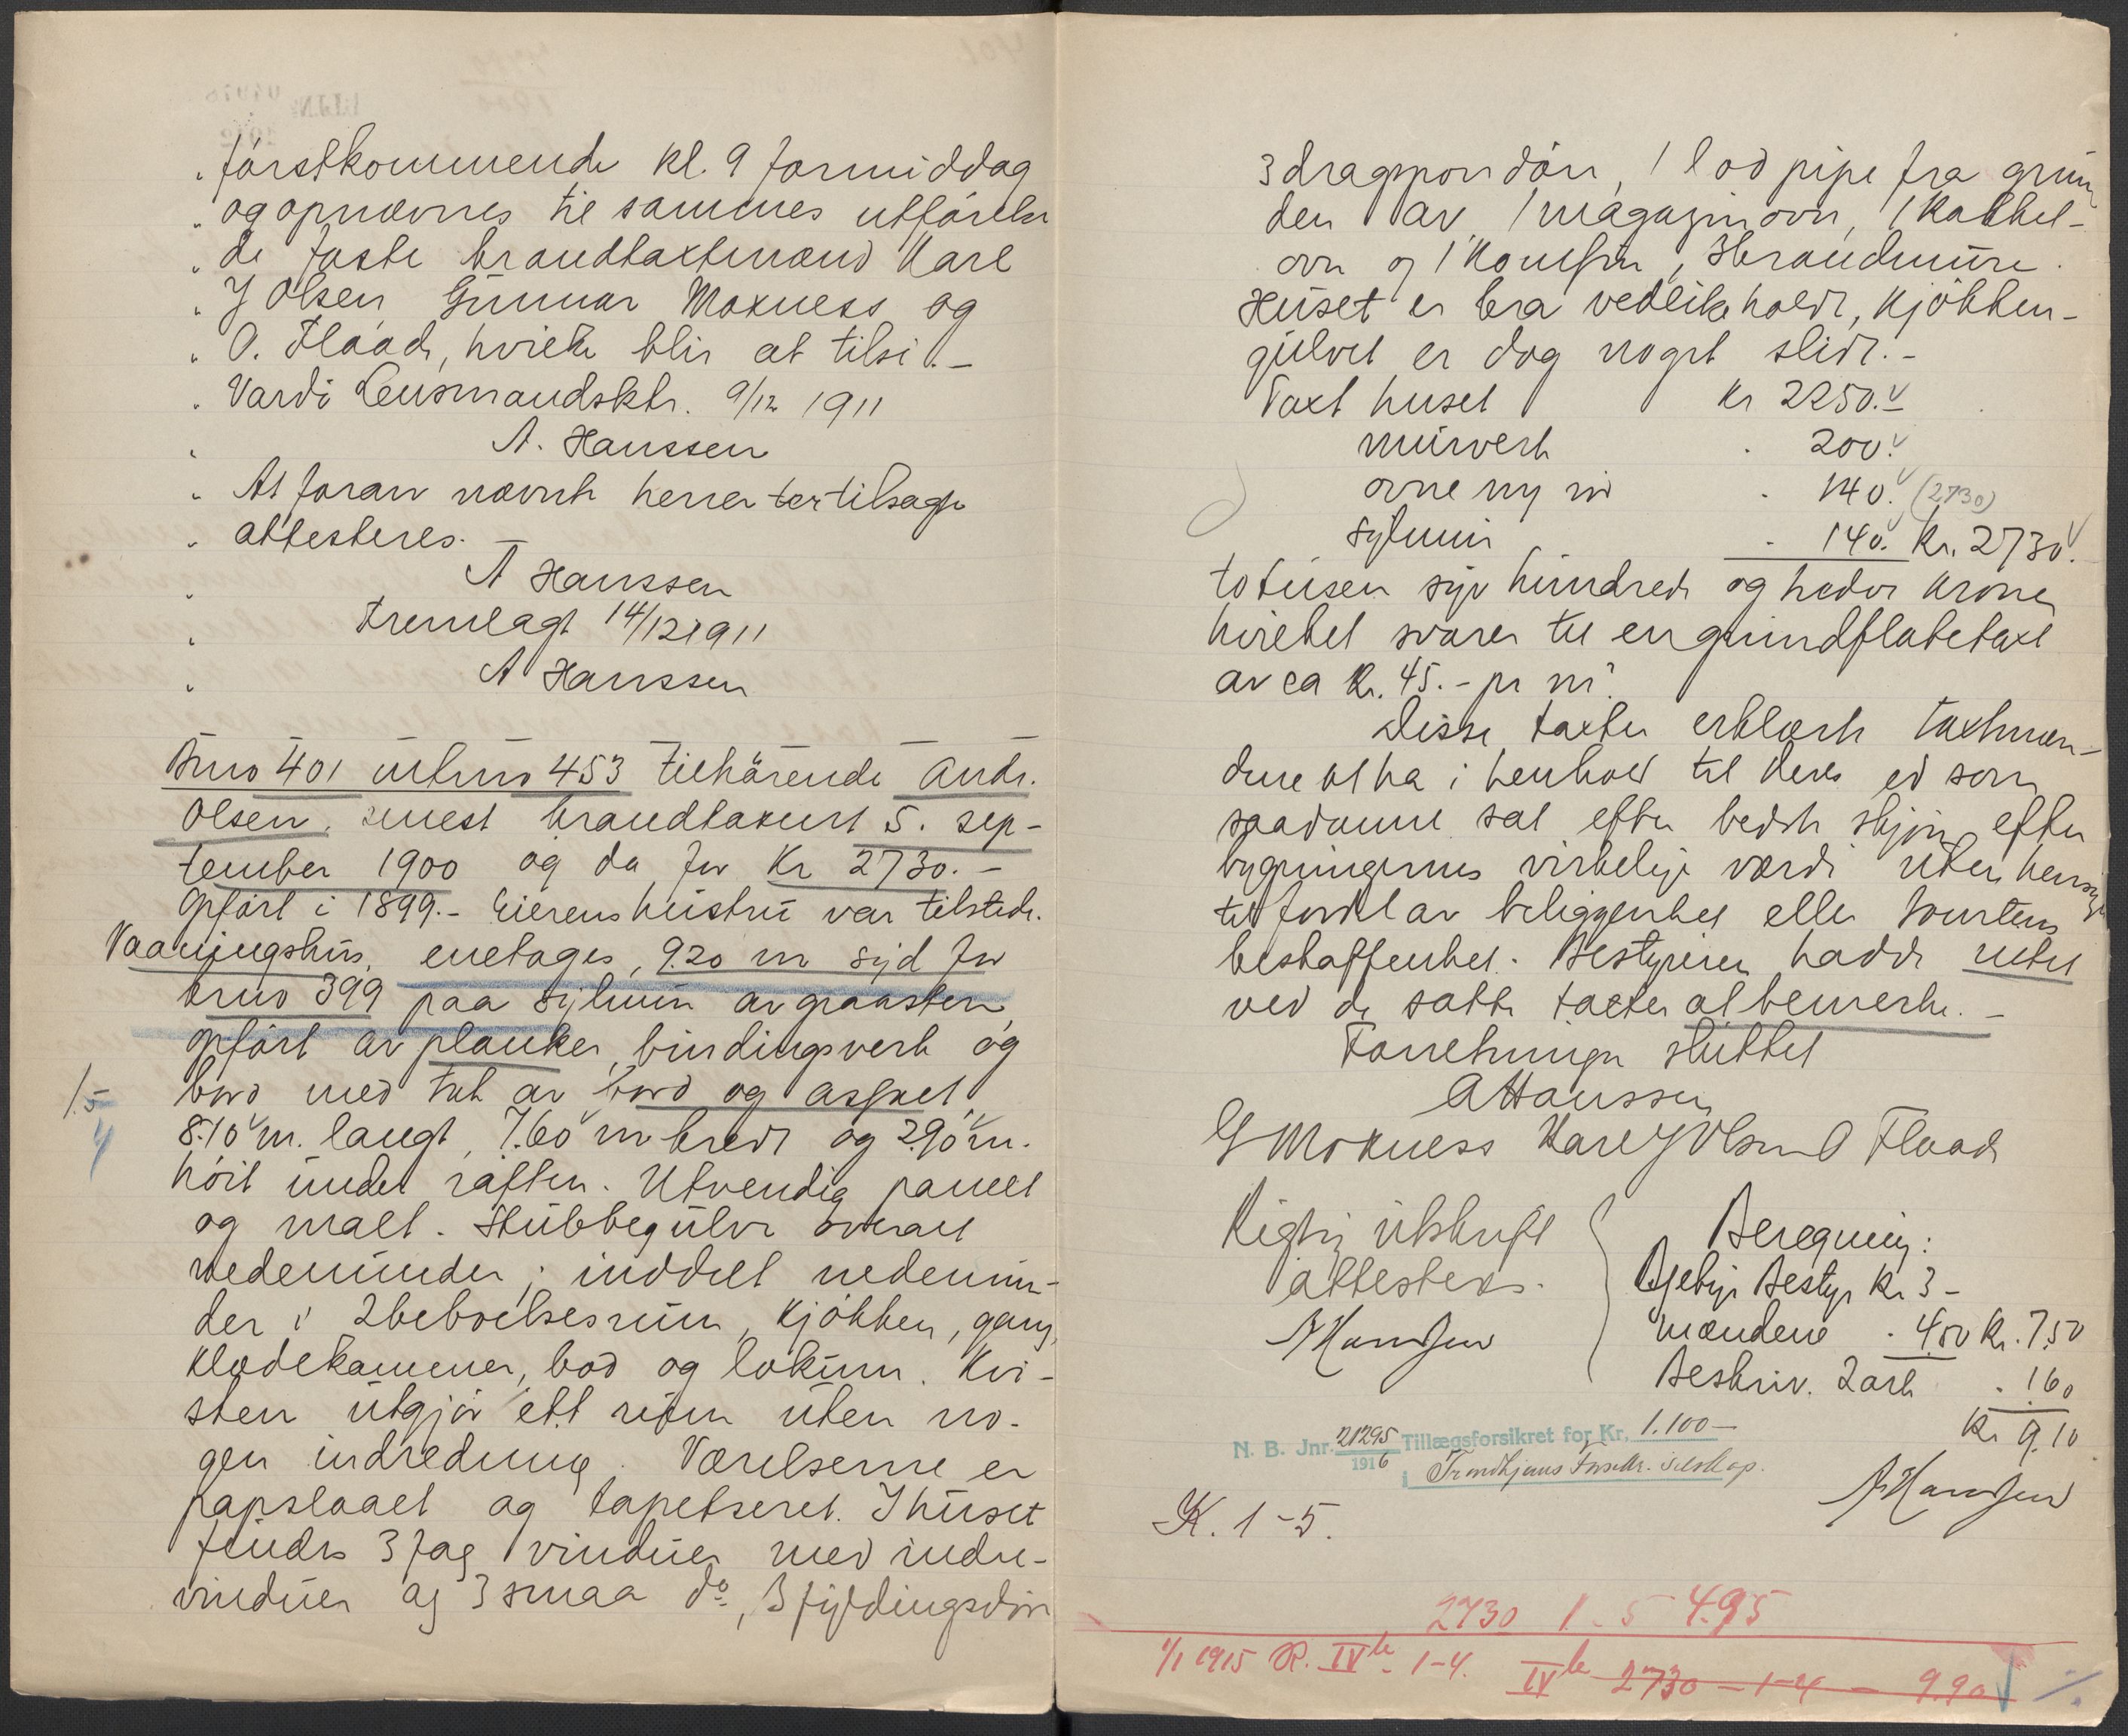 " förstkommende kl. 9 formiddag
" og opnævnes til sammes utförelse
" de faste brandtaxtmænd Karl
" J Olsen, Gunnar Moxness og
" O. Flaad, hvilke blir at tilsi. -
" Vardö Lensmandsktr. 9/12 1911
" A. Hanssen
" At foran nævnte herrer er tilsagt
" attesteres. -
" A Hanssen
" Fremlagt 14/12 1911
" A Hanssen
Brno 401 matrno 453 tilhörende Andr.
Olsen, senest brandtaxert 5. sep-
tember 1900 og da for Kr 2730. -
Opfört i 1899. - Eierens hustru var tilstede.
Vaaningshus, enetages, 9.20 m syd for
brno 399 paa sylmur av graasten,
opfört av planker, bindingsverk og
bord med tak av bord og asfalt,
1.5
4
8.10 m. langt, 7.60 m bredt og 2.90 m.
höit under raften. Utvendig panelt
og malt. Stubbegulve overalt
nedenunder; inddelt nedenun-
der i 2 beboelsesrum, kjökken, gang,
klædekammer, bod og lokum. Kvi-
sten utgjör ett rum uten no-
gen indredning. Værelserne er
papslaaet og tapetseret. I huset
findes 3 fag vinduer med indre-
vinduer og 3 smaa do, 3 fyldingsdöre
3 dragspondöre, 1 lod pipe fra grun-
den av, 1 magazinovn, 1 kakkel-
ovn og 1 komfur, 3 brandmure.
Huset er bra vedlikeholdt, kjökken-
gulvet er dog noget slidt. -
Taxt huset Kr 2250. -
murverk " 200.
ovne ny vd " 140. (2730)
sylmur " 140. Kr. 2730.
totusen syv hundrede og tredve kroner
hvilket svarer til en grundflatetaxt
av ca Kr. 45. - pr m².
Disse taxter erklærte taxtmæn-
dene at ha i henhold til deres ed som
saadanne sat efter bedste skjön efter
bygningernes virkelige værdi uten hensyn
til fordel av beliggenhet eller tomtens
beskaffenhet. Bestyreren hadde intet
ved de satte taxter at bemerke. -
Forretningen sluttet
A Hanssen
G Moxness Karl J Olsen O Flaad
Rigtig utskrift
attesteres.
A Hanssen
Beregning:
Gebyr Bestyr Kr 3 -
mændene " 4.50 Kr. 7.50
Beskriv. 2 ark " 1.60
Kr 9.10
A Hanssen
N. B. Jnr. 21295 1916 Tillægsforsikret for Kr. 1.100 -
i Trondhjems Forsikr. selskap.
K. 1-5.
2730 1-5 4.95
1/1 1915 R. IVb. 1-4. IVb 2730 - 1-4 - 9.90